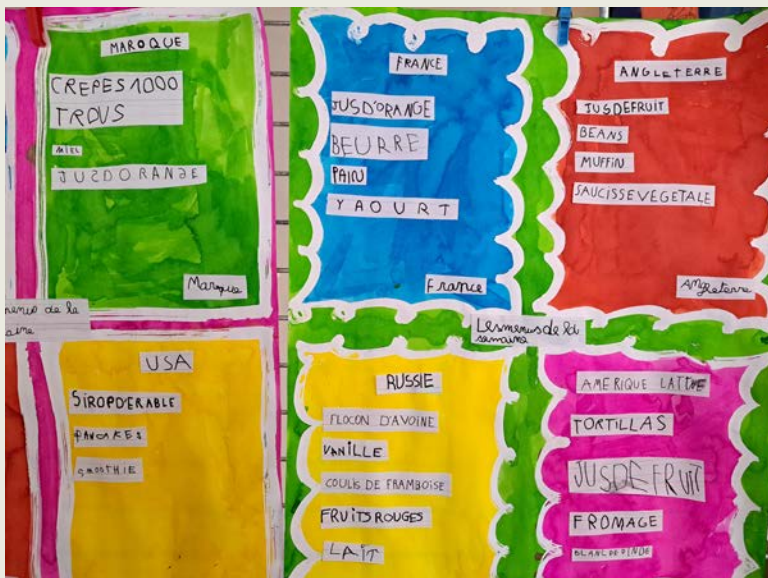 MAROQUE
CREPES 1000
TROUS
MIEL
JUSDORANGE
Maroque
FRANCE
JUSD'ORANGE
BEURRE
PAIN
YAOURT
France
ANGLETERRE
JUSDEFRUIT
BEANS
MUFFIN
SAUCISSEVEGETALE
Angleterre
menus de la
aine
Les menus de la
semaine
USA
SIROPD'ERABLE
PANCAKES
SMOOTHIE
RUSSIE
FLOCON D'AVOINE
VANILLE
COULIS DE FRAMBOISE
FRUITS ROUGES
LAIT
AMERIQUE LATINE
TORTILLAS
JUSDE FRUIT
FROMAGE
BLANC DE DINDE